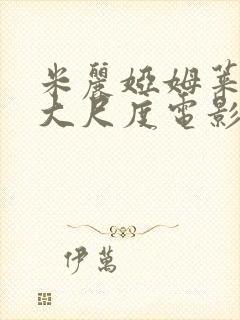 米麗婭姆萊
大尺度電影
伊萬